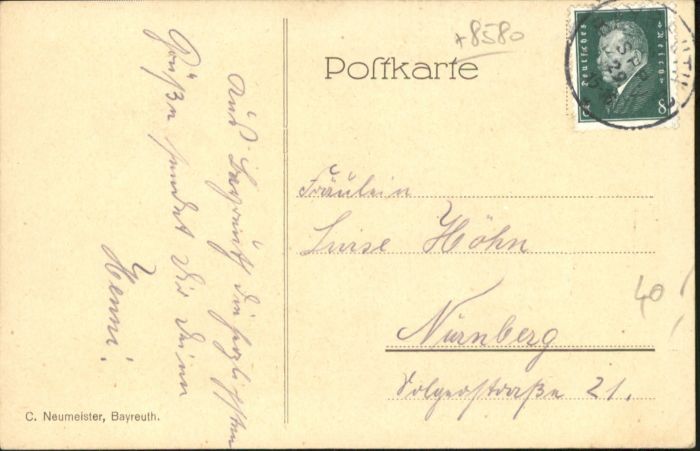 *8580
Postkarte
Deutsches Reich
8
29
Aus Bayreuth die herzlichsten
Grüße sendet Dir Deine
Henni.
Fräulein
Luise Höhn
Nürnberg
Volgerstraße 21.
40
C. Neumeister, Bayreuth.